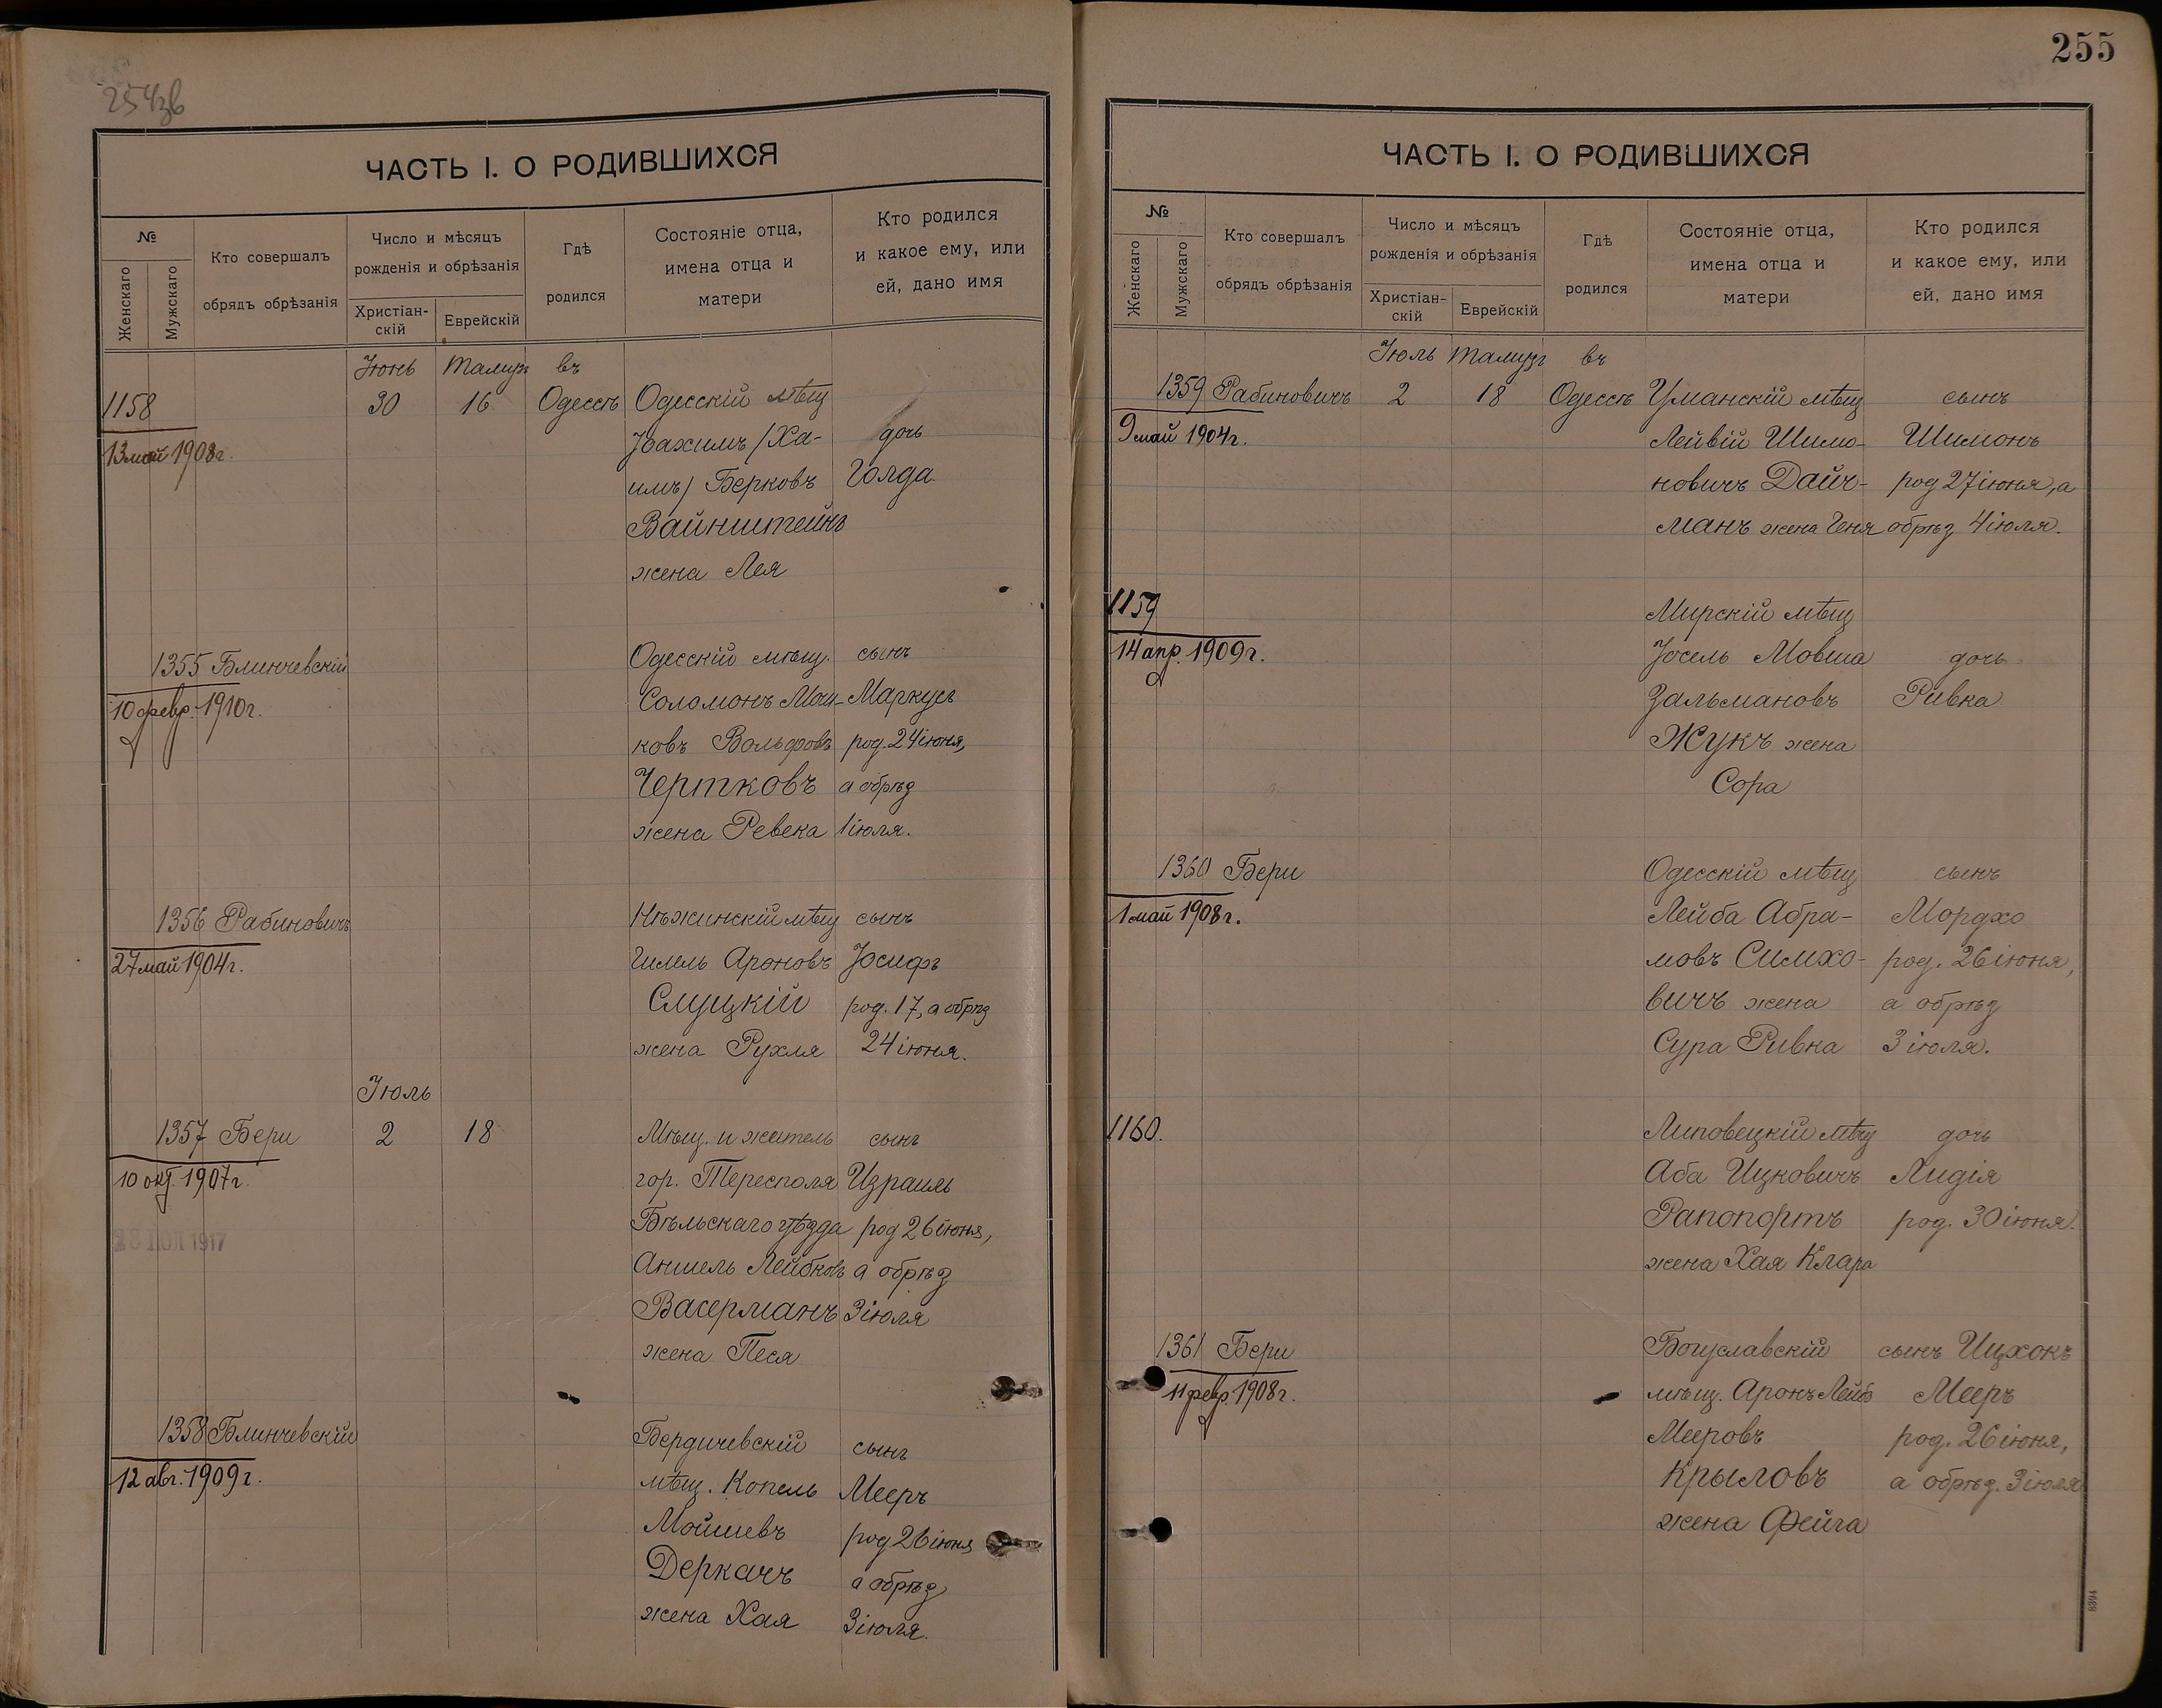 254зв
ЧАСТЬ I. О РОДИВШИХСЯ
№
Женскаго
Мужскаго
Кто совершалъ
обрядъ обрѣзанія
Число и мѣсяцъ
рожденія и обрѣзанія
Христіан-
скій
Еврейскій
Гдѣ
родился
Состояніе отца,
имена отца и
матери
Кто родился
и какое ему, или
ей, дано имя
Іюнь Тамузъ въ
1158 30 16 Одессѣ Одесскій мѣщ
13 май 1908 г. Іоахимъ /Ха- дочь
имъ/ Берковъ Голда
Вайнштейнъ
жена Лея
1355 Блинчевскій Одесскій мѣщ. сынъ
10 февр. 1910 г. Соломонъ Маркусъ
ковъ Вольфовъ род. 24 іюня,
Чертковъ а обрѣз
жена Ревека 1 іюля.
1356 Рабиновичъ Нѣжинскій мѣщ сынъ
27 май 1904 г. Гилель Ароновъ Іосифъ
Слуцкій род. 17, а обрѣз
жена Рухля 24 іюня.
Іюль
1357 Бери 2 18 Мѣщ. и житель сынъ
10 окт 1907 г. гор. Тересполя Израиль
28 1917 Бѣльскаго уѣзда род 26 іюня,
Аншель Лейбковъ а обрѣз
Васерманъ 3 іюля
жена Песя
1358 Блинчевскій Бердичевскій сынъ
12 авг. 1909 г. мѣщ. Копель Мееръ
Мойшевъ род 26 іюня
Деркачъ а обрѣз
жена Хая 3 іюля.
255
ЧАСТЬ I. О РОДИВШИХСЯ
№
Женскаго
Мужскаго
Кто совершалъ
обрядъ обрѣзанія
Число и мѣсяцъ
рожденія и обрѣзанія
Христіан-
скій
Еврейскій
Гдѣ
родился
Состояніе отца,
имена отца и
матери
Кто родился
и какое ему, или
ей, дано имя
Іюль Тамузъ въ
1359 Рабиновичъ 2 18 Одессѣ Уманскій мѣщ сынъ
9 май 1904 г. Лейвій Шимо- Шимонъ
новичъ Дайч- род 27 іюня, а
манъ жена Геня обрѣз 4 іюля.
1159 Мирскій мѣщ
14 апр. 1909 г. Іосель Мовша дочь
Зальмановъ Ривка
Жукъ жена
Сора
1360 Бери Одесскій мѣщ сынъ
1 май 1908 г. Лейба Абра- Мордхо
мовъ Симхо- род. 26 іюня,
вичъ жена а обрѣз
Сура Ривка 3 іюля.
1160. Липовецкій мѣщ дочь
Аба Ицковичъ Лидія
Рапопортъ род. 30 іюня.
жена Хая Клара
1361 Бери Богуславскій сынъ Ицхокъ
11 февр. 1908 г. мѣщ. Аронъ Лейб Мееръ
Мееровъ род. 26 іюня,
Крыловъ а обрѣз. 3 іюля
жена Фейга
8394